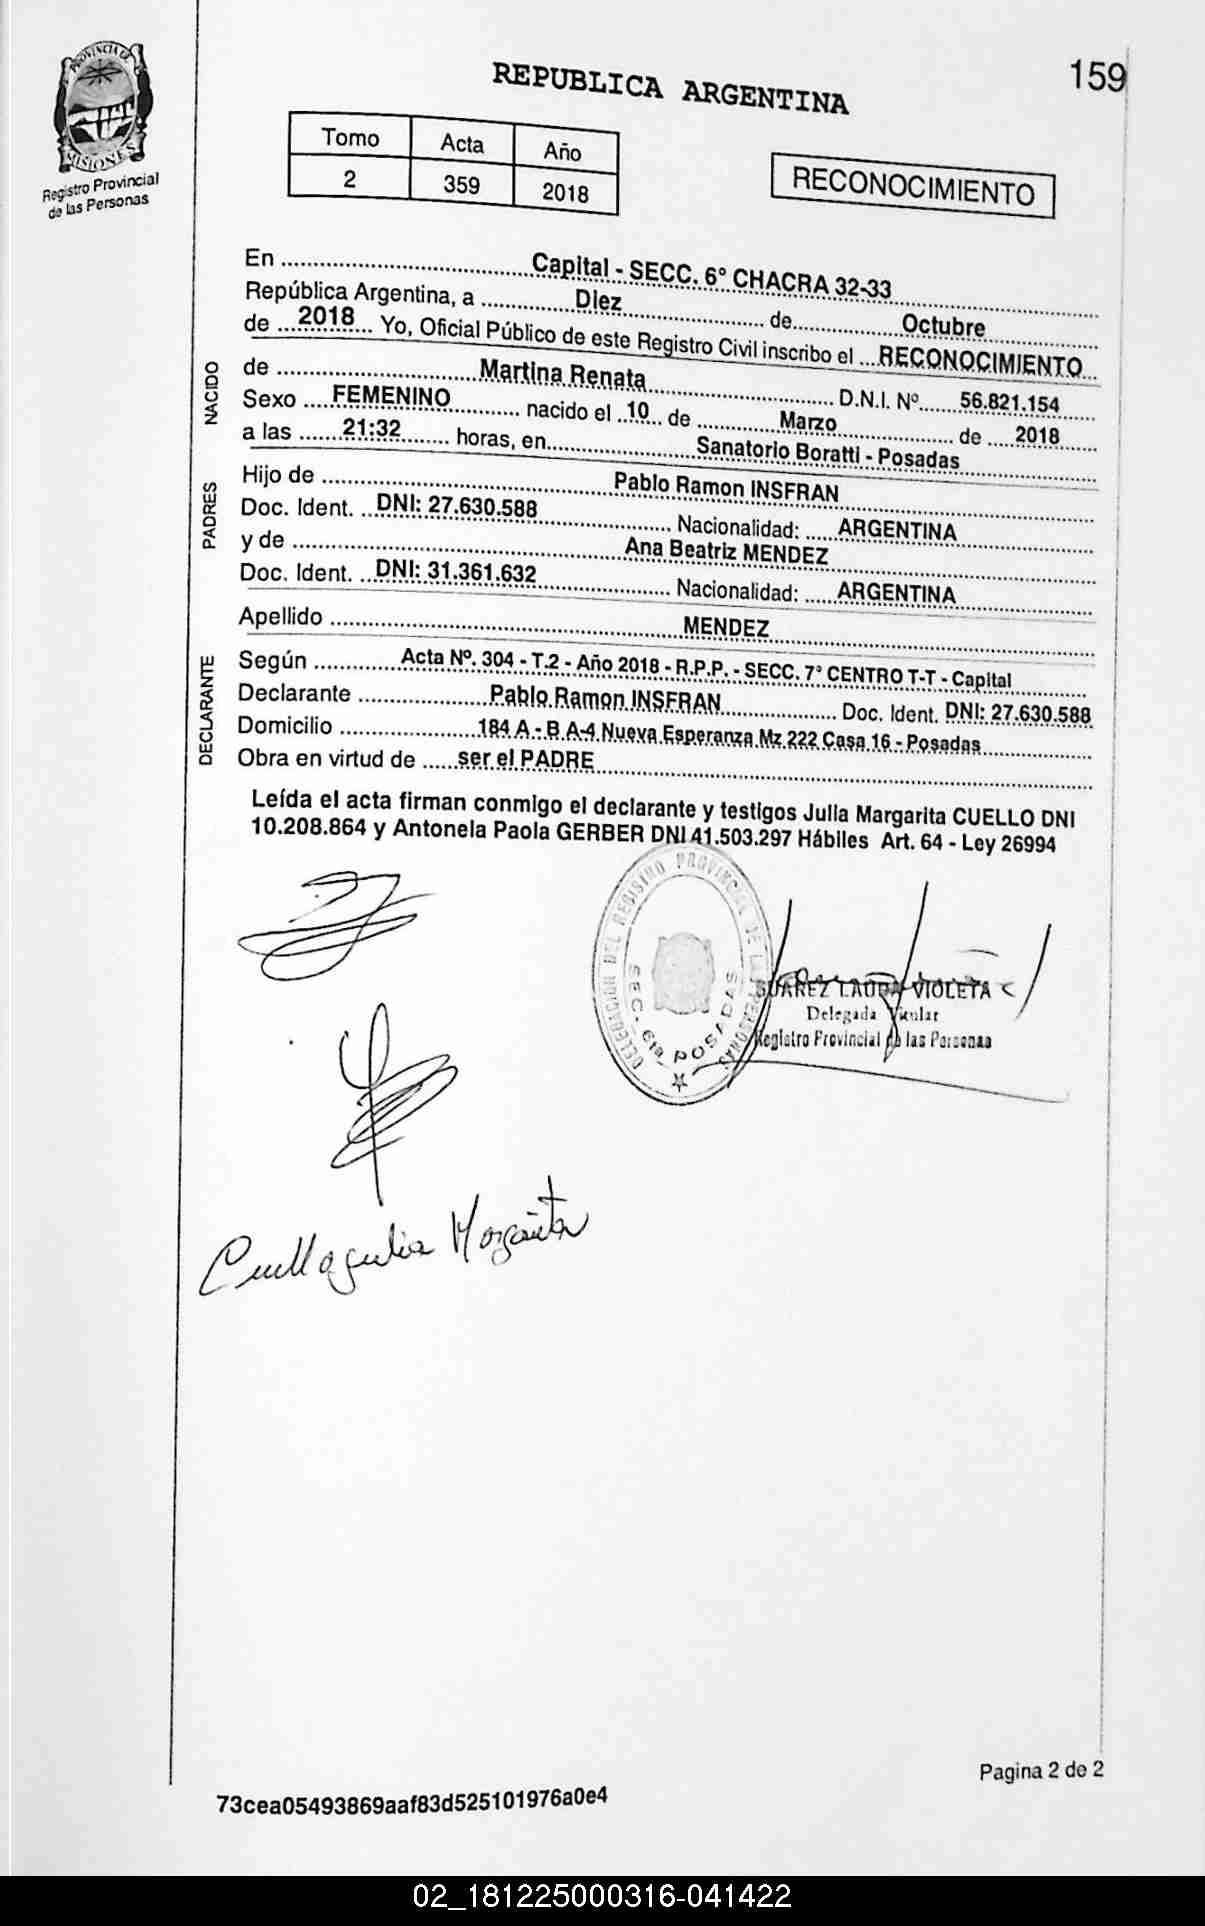 PROVINCIA DE
MISIONES
Registro Provincial
de las Personas
REPUBLICA ARGENTINA
159
Tomo Acta Año
2 359 2018
RECONOCIMIENTO
En Capital - SECC. 6° CHACRA 32-33
República Argentina, a Diez de Octubre
de 2018 Yo, Oficial Público de este Registro Civil inscribo el RECONOCIMIENTO
NACIDO
de Martina Renata D.N.I. Nº 56.821.154
Sexo FEMENINO nacido el 10 de Marzo de 2018
a las 21:32 horas, en Sanatorio Boratti - Posadas
PADRES
Hijo de Pablo Ramon INSFRAN
Doc. Ident. DNI: 27.630.588 Nacionalidad: ARGENTINA
y de Ana Beatriz MENDEZ
Doc. Ident. DNI: 31.361.632 Nacionalidad: ARGENTINA
Apellido MENDEZ
DECLARANTE
Según Acta Nº. 304 - T.2 - Año 2018 - R.P.P. - SECC. 7° CENTRO T-T - Capital
Declarante Pablo Ramon INSFRAN Doc. Ident. DNI: 27.630.588
Domicilio 184 A - B A-4 Nueva Esperanza Mz 222 Casa 16 - Posadas
Obra en virtud de ser el PADRE
Leída el acta firman conmigo el declarante y testigos Julia Margarita CUELLO DNI
10.208.864 y Antonela Paola GERBER DNI 41.503.297 Hábiles Art. 64 - Ley 26994
DELEGACION DEL REGISTRO PROVINCIAL DE LAS PERSONAS
SEC. 6ta POSADAS
SUAREZ LAURA VIOLETA
Delegada Titular
Registro Provincial de las Personas
Cuello Julia Margarita
Pagina 2 de 2
73cea05493869aaf83d525101976a0e4
02_181225000316-041422